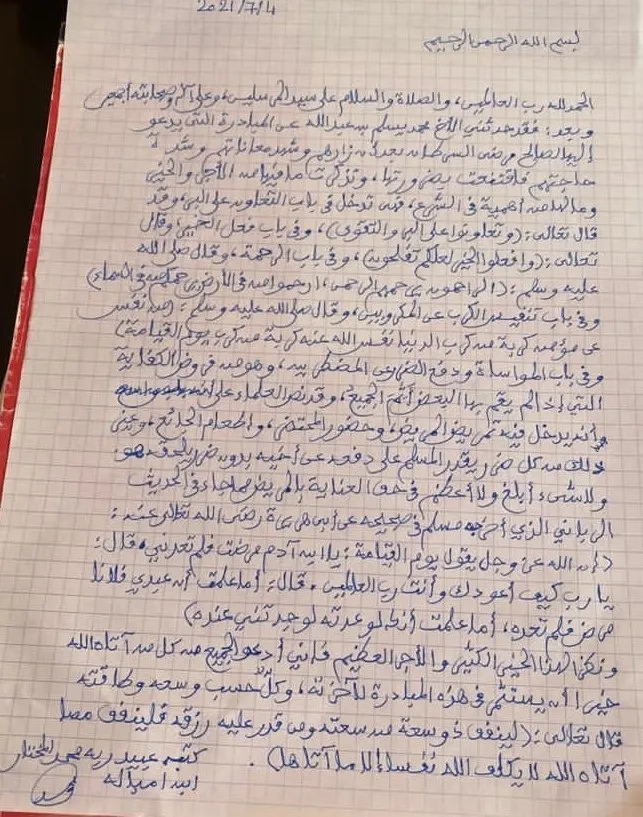 2021/7/4
بسم الله الرحمن الرحيم
الحمد لله رب العالمين، والصلاة والسلام على سيد المرسلين، وعلى آله وصحابته أجمعين
وبعد: فقد حدثني الأخ محمد يسلم بن عبد الله عن المبادرة التي يدعو
إليها لصالح مرضى السرطان بعد أن زارهم وشهد معاناتهم وشدة
حاجتهم فاقتنعت بضرورتها، وتذكرت ما فيها من الأجر والخير
وما لها من أهمية في الشرع، فهي تدخل في باب التعاون على البر، وقد
قال تعالى: (وتعاونوا على البر والتقوى)، وفي باب فعل الخير، وقال
تعالى: (وافعلوا الخير لعلكم تفلحون)، وفي باب الرحمة، وقال صلى الله
عليه وسلم: (الراحمون يرحمهم الرحمن، ارحموا من في الأرض يرحمكم من في السماء)
وفي باب تنفيس الكرب عن المكروبين، وقال صلى الله عليه وسلم: (من نفس
عن مؤمن كربة من كرب الدنيا نفس الله عنه كربة من كرب يوم القيامة)
وفي باب المواساة ودفع الضرر عن المضطرين، وهو من فروض الكفاية
التي إذا لم يقم بها البعض أثم الجميع، وقد نص العلماء على
أنه يدخل فيه تمريض المريض، وحضور المحتضر، وإطعام الجائع، وغير
ذلك من كل ضرر يقدر المسلم على دفعه عن أخيه بدون ضرر يلحقه هو.
ولا شيء أبلغ ولا أعظم في حق العناية بالمريض مما جاء في الحديث
الرباني الذي أخرجه مسلم في صحيحه عن أبي هريرة رضي الله تعالى عنه:
(إن الله عز وجل يقول يوم القيامة: يا ابن آدم مرضت فلم تعدني، قال:
يا رب كيف أعودك وأنت رب العالمين. قال: أما علمت أن عبدي فلانا
مرض فلم تعده، أما علمت أنك لو عدته لوجدتني عنده)
ونظرا لهذا الخير الكثير والأجر العظيم فإني أدعو الجميع من كل من آتاه الله
خيرا أن يستثمر في هذه المبادرة لآخرته، وكل حسب وسعه وطاقته
قال تعالى: (لينفق ذو سعة من سعته ومن قدر عليه رزقه فلينفق مما
آتاه الله لا يكلف الله نفسا إلا ما آتاها).
كتبه عبيد ربه محمد المختار
ابن امباله